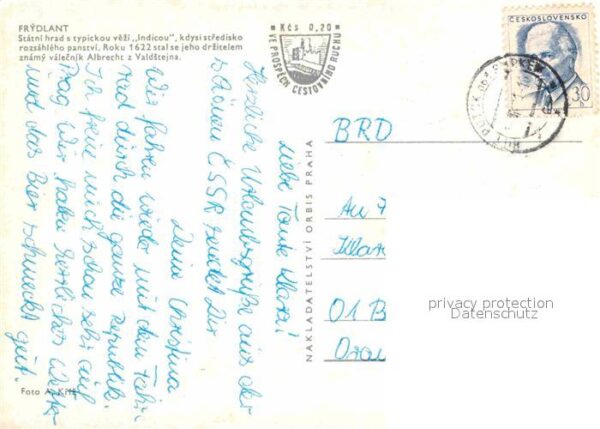 FRÝDLANT
Státní hrad s typickou věží „Indicou", kdysi středisko
rozsáhlého panství. Roku 1622 stal se jeho držitelem
známý válečník Albrecht z Valdštejna.
Kčs 0,20
VE PROSPĚCH CESTOVNÍHO RUCHU
ČESKOSLOVENSKO
30
liebe Tante Klara!
Herzliche Urlaubsgrüße aus der
schönen ČSSR sendet Dir
Deine Christina
Wir fahren wieder mit dem Fahr
rad durch die ganze Republik.
Ich freue mich schon sehr auf
Prag. Wir haben herrliches Wetter
und das Bier schmeckt gut.
NAKLADATELSTVÍ ORBIS PRAHA
BRD
An
Klar
01 B
Foto A.
privacy protection
Datenschutz